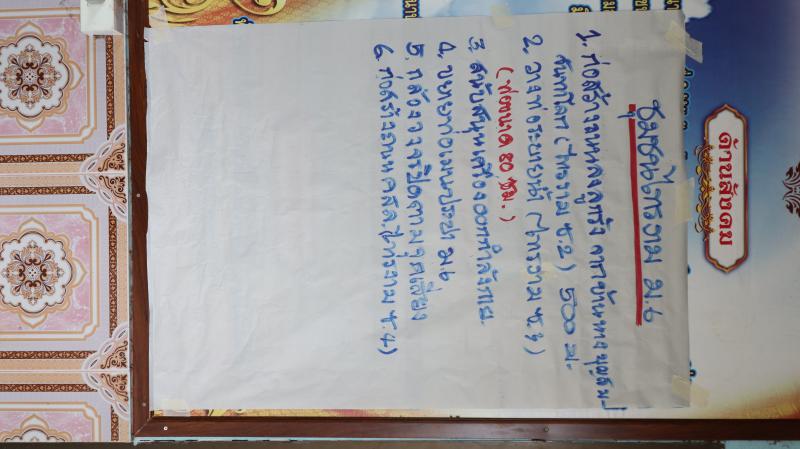 ด้านสังคม
ชุมชนไทรงาม ม.๖
1. ก่อสร้างถนนลูกรัง จากบ้านนายบุญส่ม-
สันทโลก (ไทรงาม ซ.2) 500 ม.
2. วางท่อระบายน้ำ (ไทรงาม ซ.3)
(ท่อขนาด 80 ซม.)
3. สนับสนุนเครื่องออกกำลังกาย
4. ขยายท่อเมนประปา ม.๖
5. กล้องวงจรปิดตามจุดเสี่ยง
๖. ก่อสร้างถนนคสล.(ไทรงาม ซ.4)